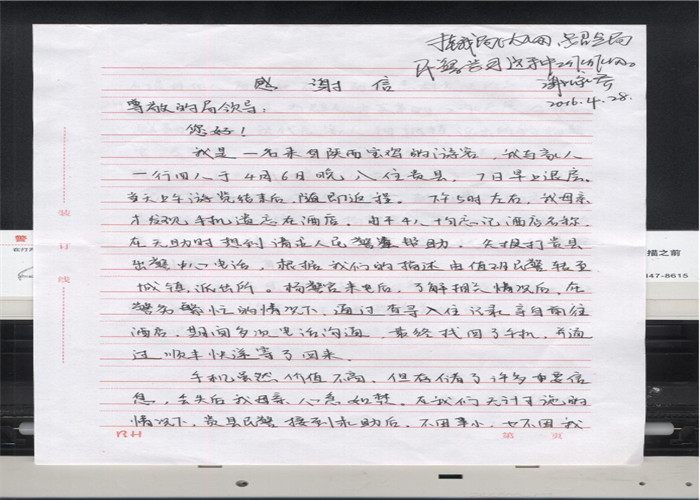 2016.4.28.
感谢信
尊敬的局领导:
您好!
我是一名来自陕西宝鸡的游客,我与家人
一行四人于4月6日晚入住贵县,7日早上退房。
当天上午游览结束后,随即返程。下午5时左右,我母亲
才发现手机遗忘在酒店。由于本人十分忘记酒店名称,
在无助时想到请求人民警察帮助。先拨打贵县
出警中心电话,根据我们的描述由值班民警转至
城镇派出所。杨警官来电后,了解相关情况后,在
警务繁忙的情况下,通过查寻入住记录亲自前往
酒店,期间多次电话沟通,最终找回了手机,并通
过顺丰快递寄了回来。
手机虽然价值不高,但存储了许多重要信
息,丢失后我母亲心急如焚。在我们无计可施的
情况下,贵县民警接到求助后,不因事小,也不因我
装
订
线
BH
第 页
警
描之前
347-8615